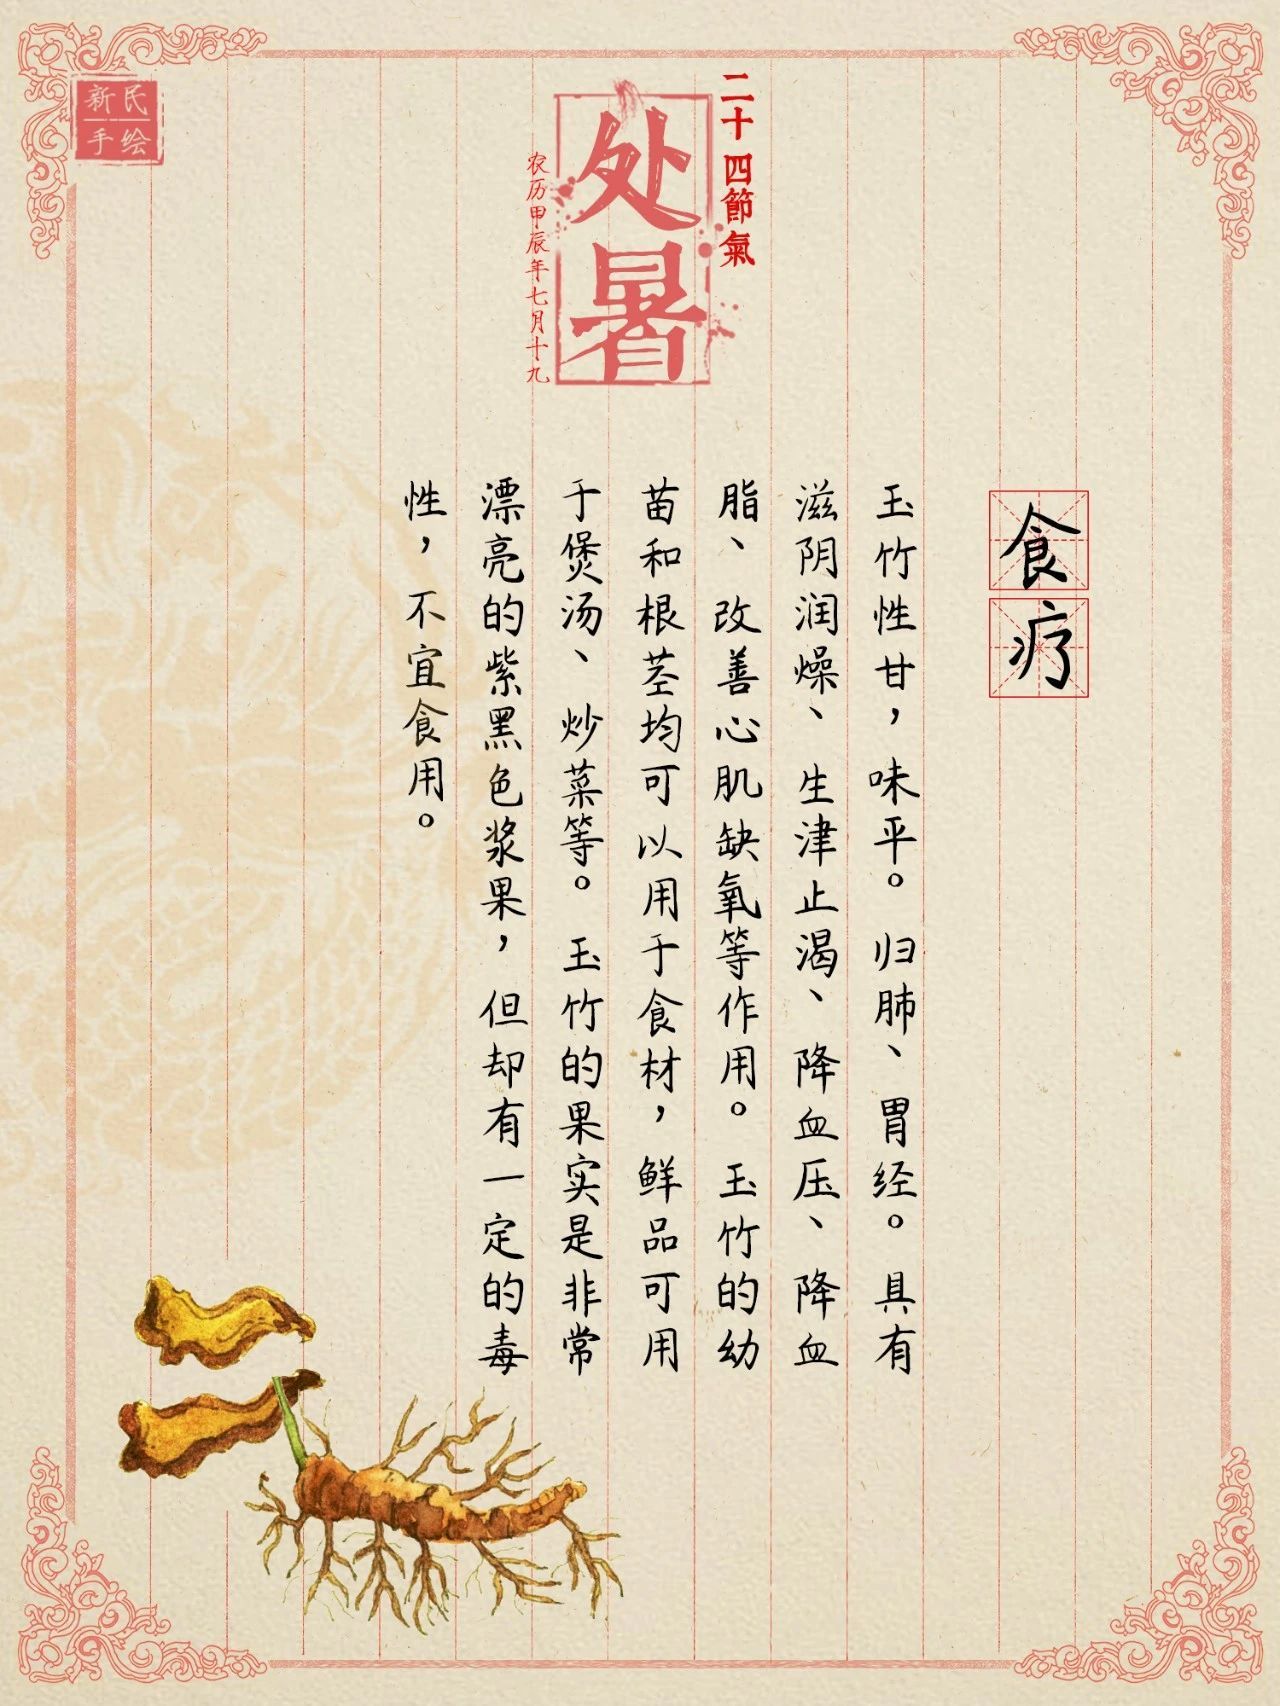 新民
手绘
二十四節氣
处暑
农历甲辰年七月十九
食疗
玉竹性甘，味平。归肺、胃经。具有
滋阴润燥、生津止渴、降血压、降血
脂、改善心肌缺氧等作用。玉竹的幼
苗和根茎均可以用于食材，鲜品可用
于煲汤、炒菜等。玉竹的果实是非常
漂亮的紫黑色浆果，但却有一定的毒
性，不宜食用。